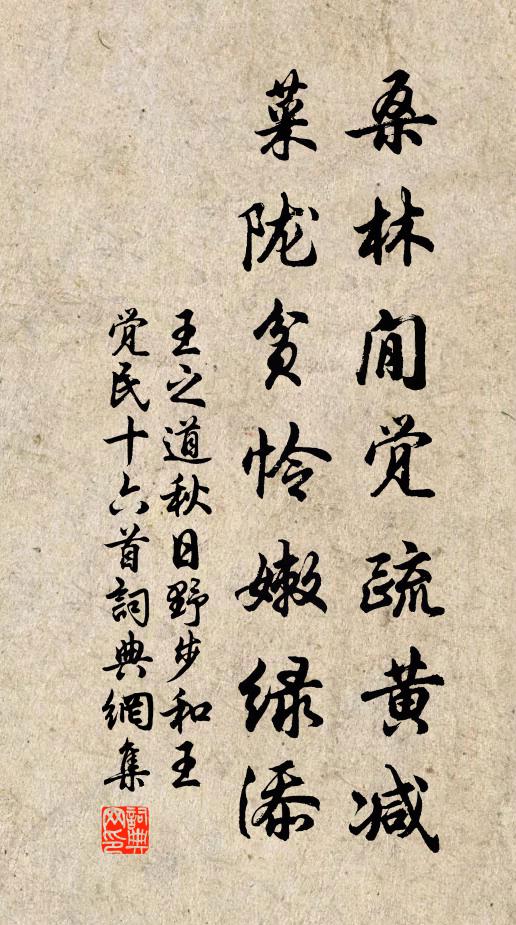 桑林閒觉疏黄减
菜陇贫怜嫩绿添
王之道秋日野步和王
觉民十六首詞典網集
詞典
网印